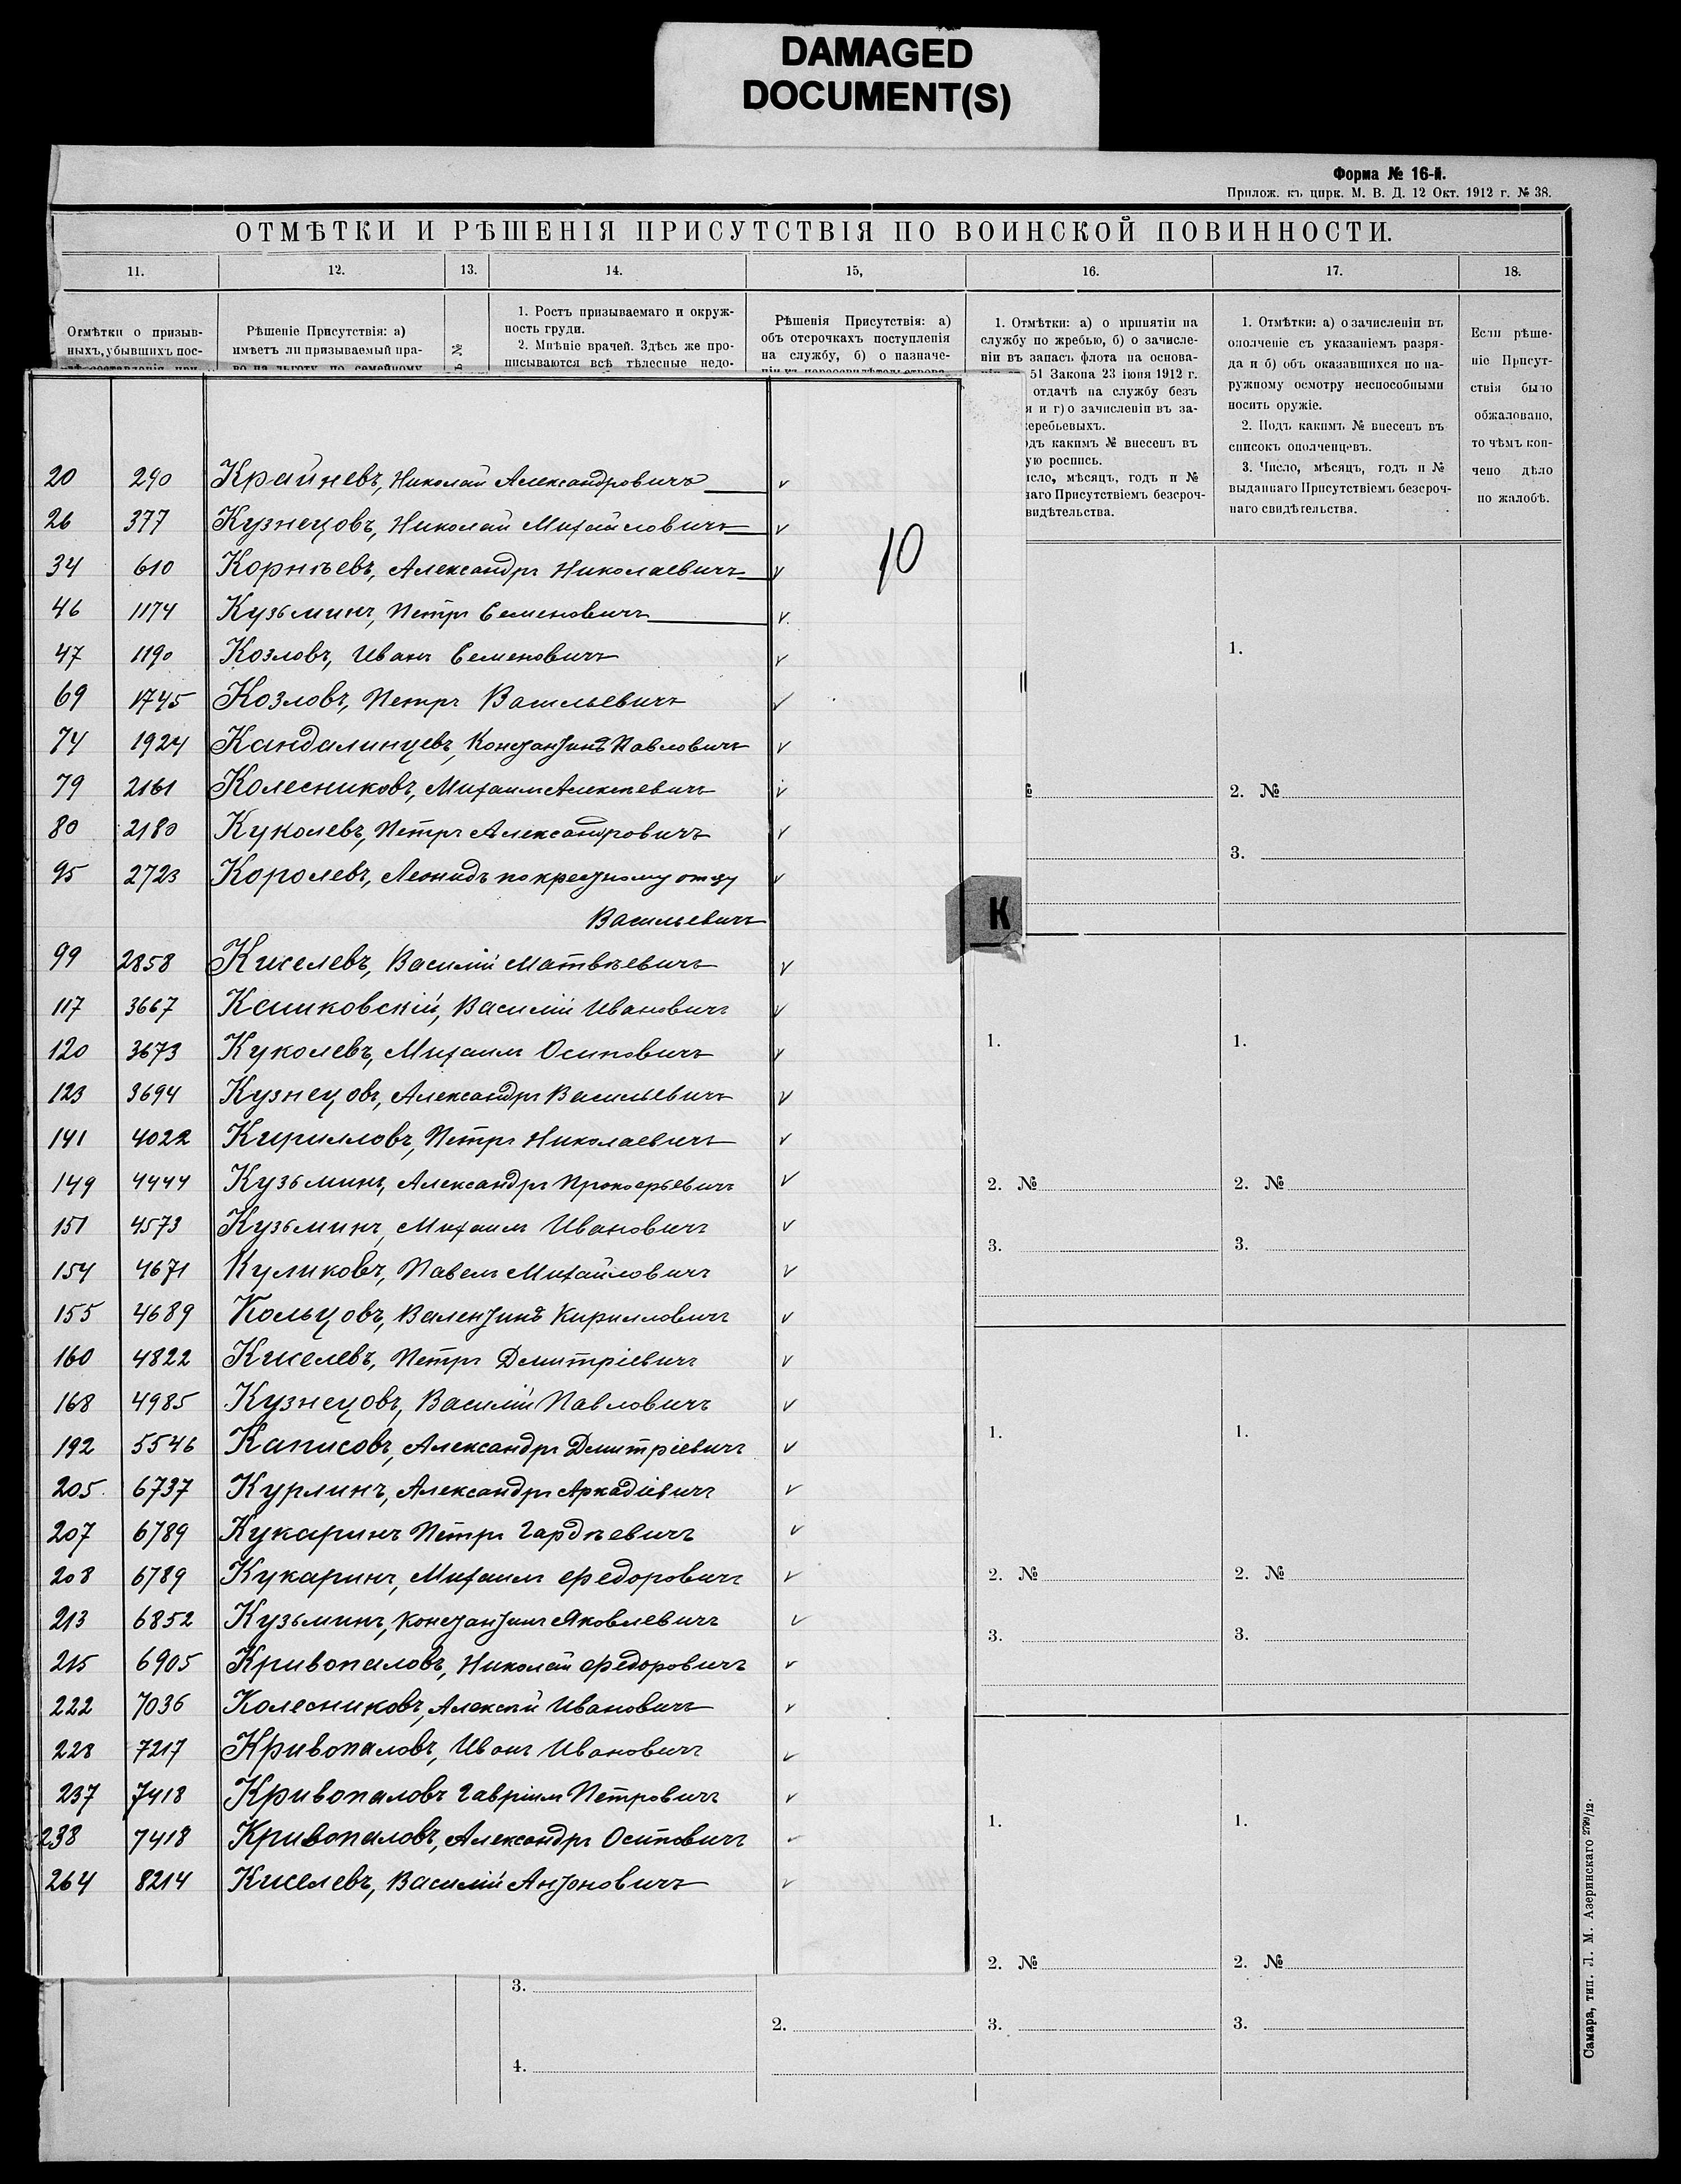 DAMAGED
DOCUMENT(S)
Форма № 16-й.
Прилож. къ цирк. М. В. Д. 12 Окт. 1912 г. № 38.
ОТМѢТКИ И РѢШЕНІЯ ПРИСУТСТВІЯ ПО ВОИНСКОЙ ПОВИННОСТИ.
11. 12. 13. 14. 15, 16. 17. 18.
Отмѣтки о призыв-
ныхъ, убывшихъ пос-
Рѣшеніе Присутствія: а)
имѣетъ ли призываемый пра-
во на льготу по семейному
№
1. Ростъ призываемаго и окруж-
ность груди.
2. Мнѣніе врачей. Здѣсь же про-
писываются всѣ тѣлесные недо-
Рѣшенія Присутствія: а)
объ отсрочкахъ поступленія
на службу, б) о назначе-
1. Отмѣтки: а) о принятіи на
службу по жребью, б) о зачисле-
ніи въ запасъ флота на основа-
51 Закона 23 іюня 1912 г.
отдачѣ на службу безъ
и г) о зачисленіи въ за-
жеребьевыхъ.
одъ какимъ № внесенъ въ
ую роспись.
исло, мѣсяцъ, годъ и №
наго Присутствіемъ безсроч-
видѣтельства.
1. Отмѣтки: а) о зачисленіи въ
ополченіе съ указаніемъ разря-
да и б) объ оказавшихся по на-
ружному осмотру неспособными
носить оружіе.
2. Подъ какимъ № внесенъ въ
списокъ ополченцевъ.
3. Число, мѣсяцъ, годъ и №
выданнаго Присутствіемъ безсроч-
наго свидѣтельства.
Если рѣше-
ніе Присут-
ствія было
обжаловано,
то чѣмъ кон-
чено дѣло
по жалобѣ.
20 290 Крайневъ, Николай Александровичъ v
26 377 Кузнецовъ, Николай Михайловичъ v
10
34 610 Корнѣевъ, Александръ Николаевичъ v
46 1174 Кузьминъ, Петръ Семеновичъ v
47 1190 Козловъ, Иванъ Семеновичъ v
69 1745 Козловъ, Петръ Васильевичъ v
74 1924 Кандалинцевъ, Константинъ Павловичъ v
79 2161 Колесниковъ, Михаилъ Алексѣевичъ v
80 2180 Куколевъ, Петръ Александровичъ v
95 2723 Королевъ, Леонидъ по крестному отцу v
Васильевичъ
K
99 2858 Киселевъ, Василій Матвѣевичъ v
117 3667 Василій Ивановичъ v
120 3673 Куколевъ, Михаилъ Осиповичъ v
123 3694 Кузнецовъ, Александръ Васильевичъ v
141 4022 Кирилловъ, Петръ Николаевичъ v
149 4444 Кузьминъ, Александръ Прокофьевичъ v
151 4573 Кузьминъ, Михаилъ Ивановичъ v
154 4671 Куликовъ, Павелъ Михайловичъ v
155 4689 Кольцовъ, Валентинъ Кирилловичъ v
160 4822 Киселевъ, Петръ Дмитріевичъ v
168 4985 Кузнецовъ, Василій Павловичъ v
192 5546 Каписовъ, Александръ Дмитріевичъ v
205 6737 Курлинъ, Александръ Аркадіевичъ v
207 6789 Кукаринъ Петръ Гордѣевичъ v
208 6789 Кукаринъ, Михаилъ Федоровичъ v
213 6852 Кузьминъ, Константинъ Яковлевичъ v
215 6905 Кривопаловъ, Николай Федоровичъ v
222 7036 Колесниковъ, Алексѣй Ивановичъ v
228 7217 Кривопаловъ, Иванъ Ивановичъ v
237 7418 Кривопаловъ Гавріилъ Петровичъ v
238 7418 Кривопаловъ, Александръ Осиповичъ v
264 8214 Киселевъ, Василій Антоновичъ v
1.
2. №
3.
1. 1.
2. № 2. №
3. 3.
1. 1.
2. № 2. №
3. 3.
1. 1.
2. № 2. №
3.
2. 3. 3.
4.
Самара, тип. Л. М. Азеринскаго 2799/12.